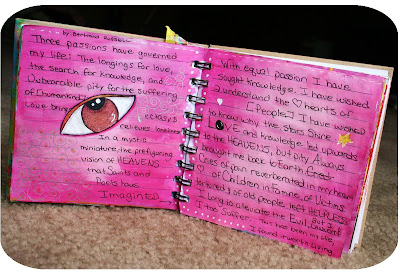 by Bertrand Russell
Three passions have governed
my life: The longings for love,
the search for knowledge, and
Unbearable pity for the suffering
of [humankind].
Love brings
ecstasy
relieves loneliness
In a mystic
miniature, the prefiguring
vision of HEAVENS
that Saints and
Poets have
IMAGINED.
With equal passion I have
sought knowledge. I have wished
2 understand the ♡ hearts of
[People.] I have wished
to know why the stars shine
LOVE and knowledge led upwards
to the HEAVENS, but pity Always
brought me back to Earth
Cries of pain reverberated in my heart
of Children in famine, of Victims
tortured, of old people left HELPLESS
I long to alleviate the Evil, but I
I too Suffer. This has been my life;
I found it worth living